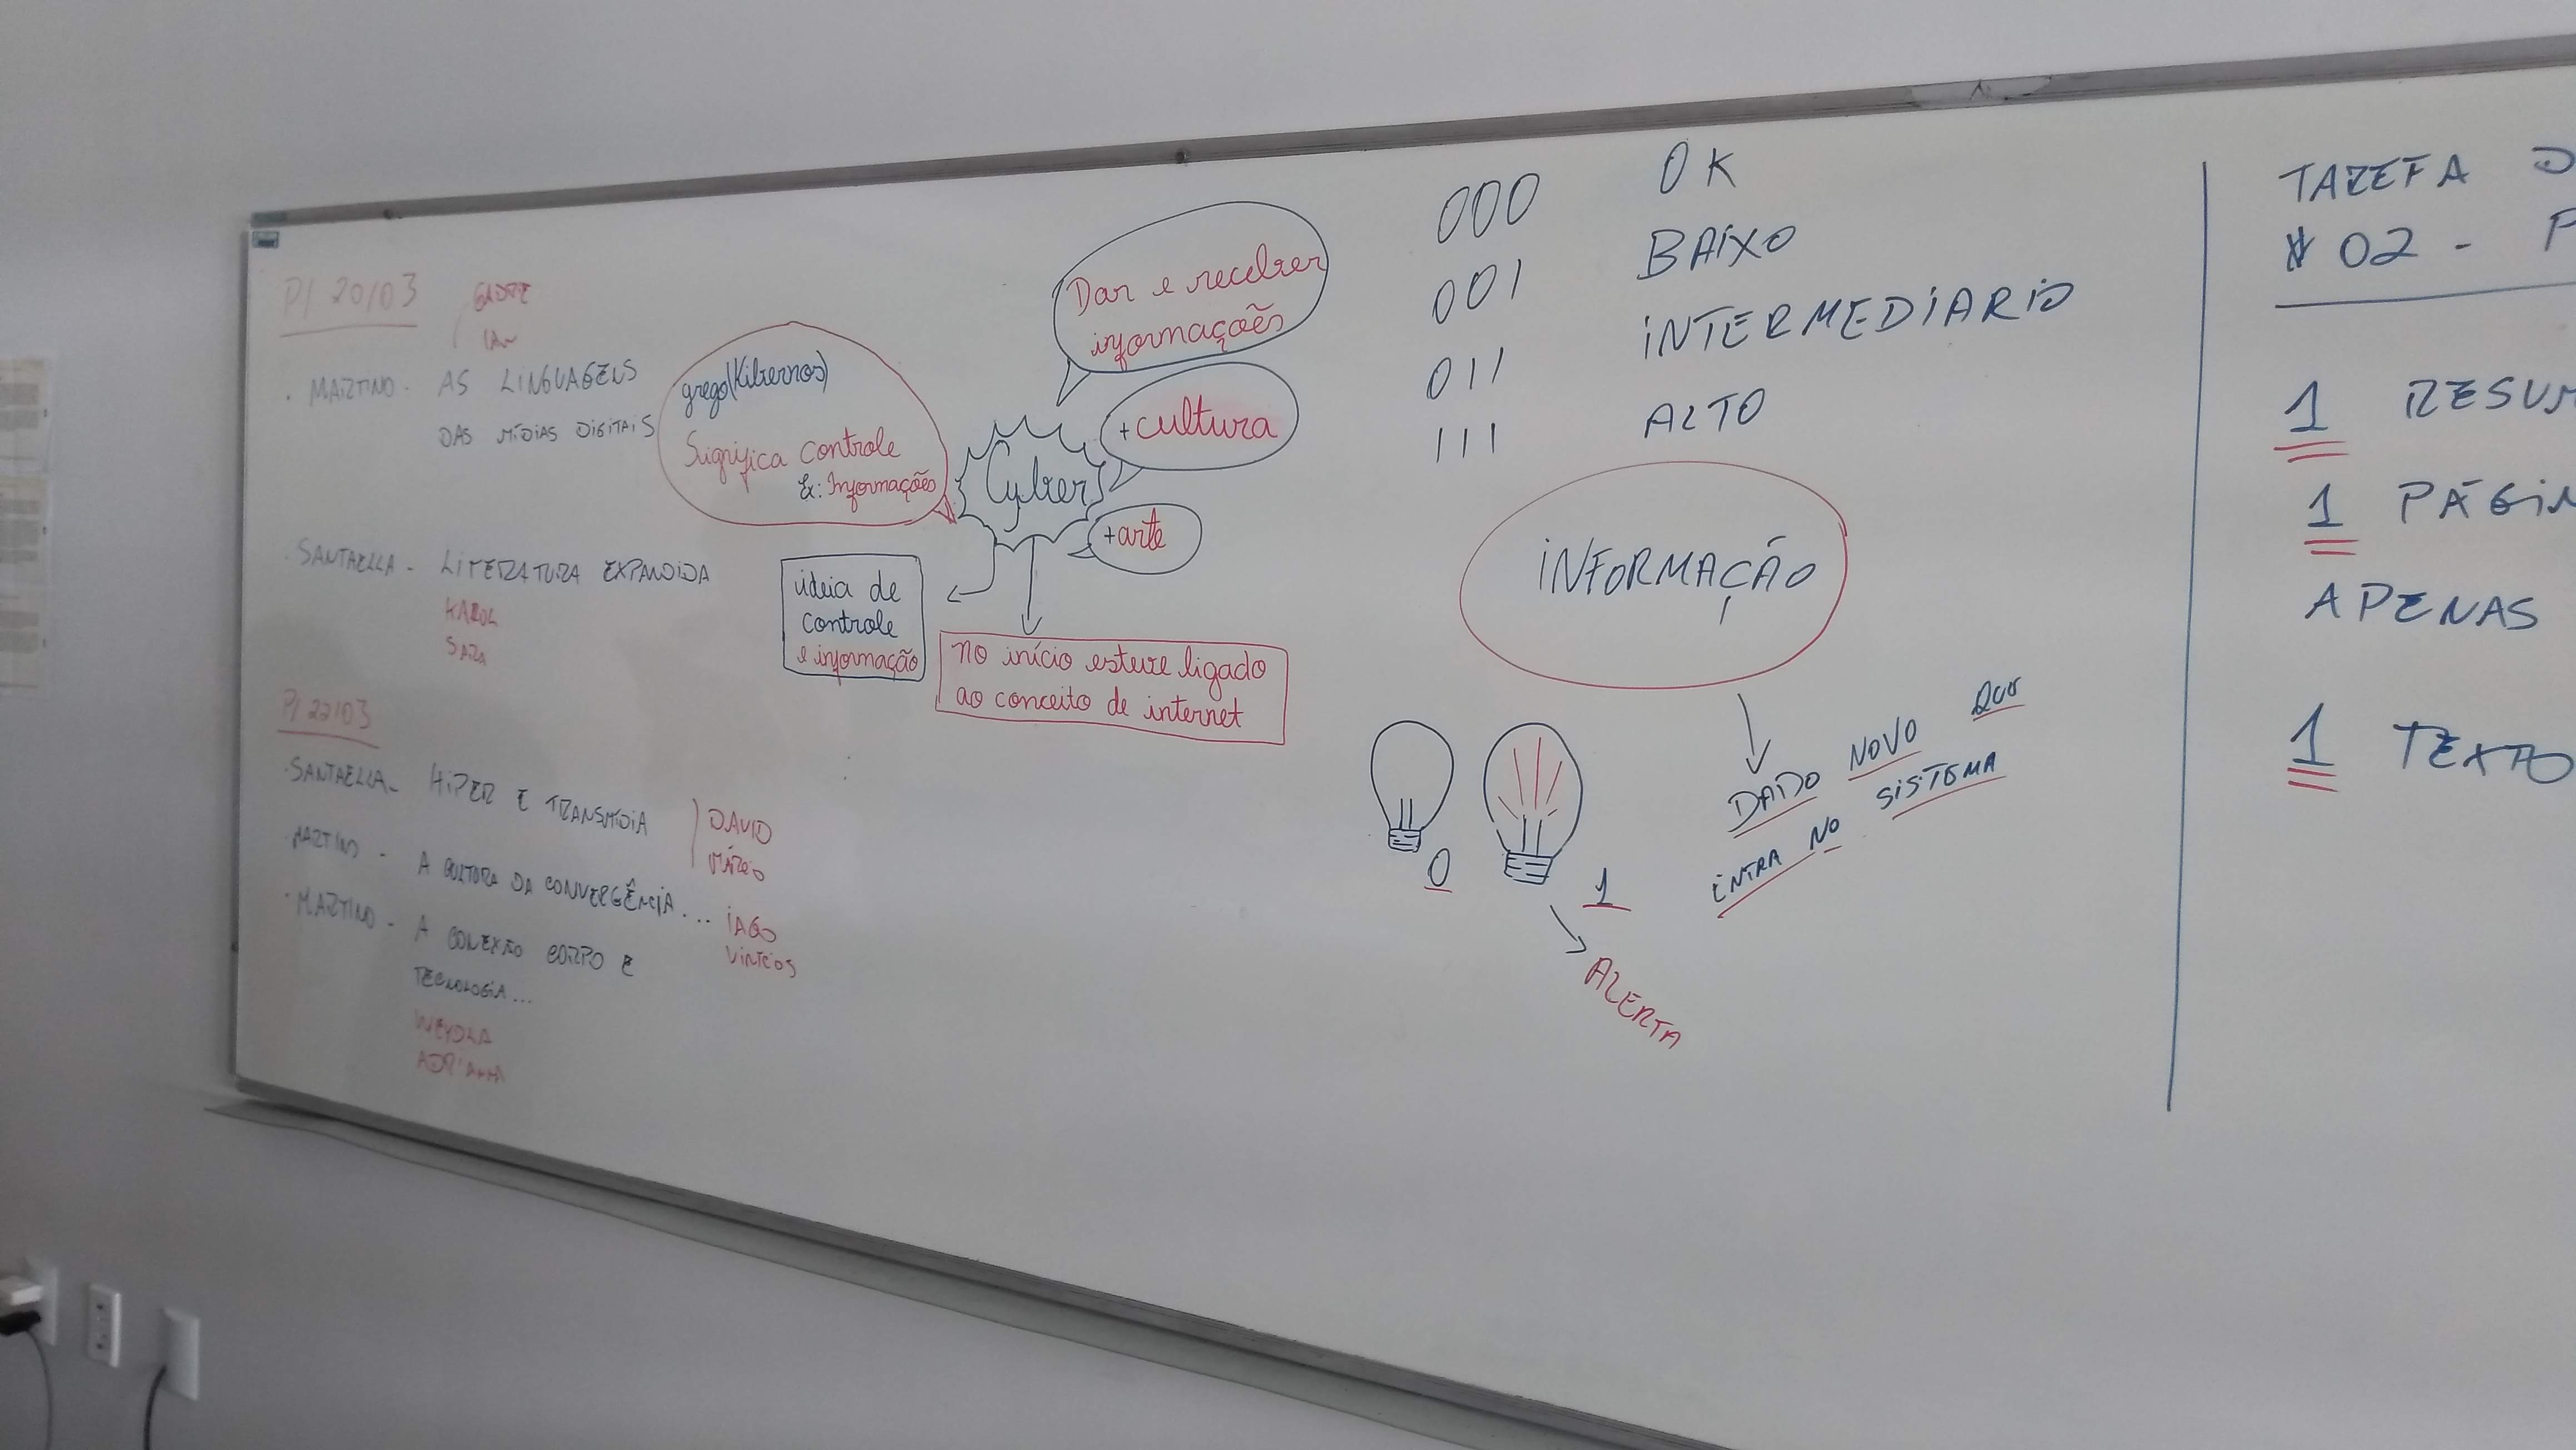 P/ 20/03
. MARTINO - AS LINGUAGENS
DAS MÍDIAS DIGITAIS
. SANTAELLA - LITERATURA EXPANDIDA
KAROL
SARA
P/ 22/03
. SANTAELLA - HIPER E TRANSMÍDIA
DAVID
MÁRIO
. MARTINO - A CULTURA DA CONVERGÊNCIA...
IAGO
VINÍCIOS
. MARTINO - A CONEXÃO CORPO E
TECNOLOGIA...
WEYDLA
grego (Kibernos)
Significa controle
Ex: Informações
Cyber
Dar e receber
informações
+ cultura
+ arte
ideia de
controle
e informação
no início esteve ligado
ao conceito de internet
000 OK
001 BAIXO
011 INTERMEDIARIO
111 ALTO
INFORMAÇÃO
DADO NOVO QUE
ENTRA NO SISTEMA
0
1
ALERTA
TAREFA D
# 02 - P
1 RESUM
1 PÁGIN
APENAS
1 TEXTO